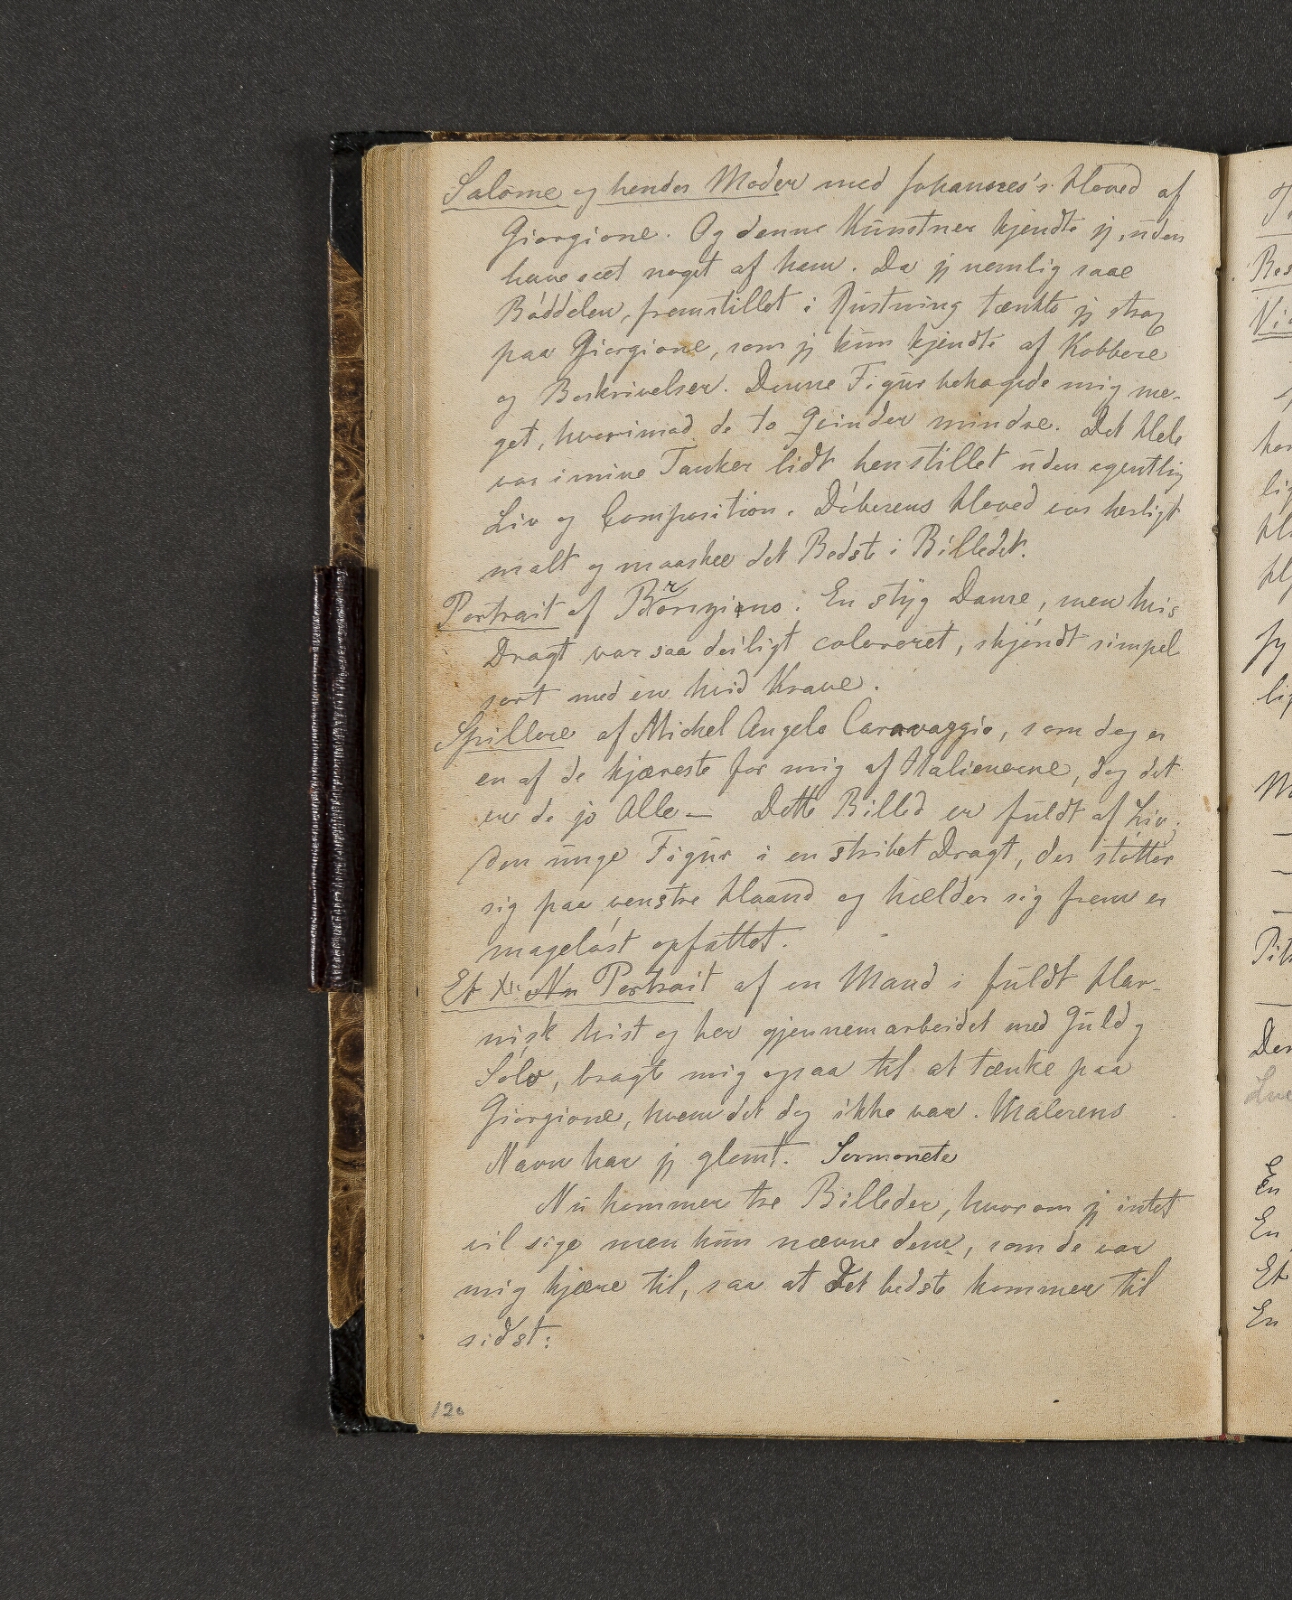 Salome og hendes Moder med Johannes's Hoved af
Giorgione. Og denne Kunstner kjendte jeg, uden
have seet noget af ham. Da jeg nemlig saae
Bøddelen, fremstillet i Rustning tænkte jeg strax
paa Giorgione, som jeg kun kjendte af Kobbere
og Beskrivelser. Denne Figur behagede mig me-
get, hvorimod de to Qvinder mindre. Det Hele
var i mine Tanker lidt henstillet uden egentlig
Liv og Composition. Døberens Hoved var herligt
malt og maaskee det Bedste i Billedet.
Portrait af . En styg Dame, men his
Dragt var saa deiligt coloreret, skjøndt simpel
sort med en hvid Krave.
Spillere af Michel Angelo Caravaggio, som dog er
en af de kjæreste for mig af Italienerne, dog det
er de jo Alle — Dette Billed er fuldt af Liv.
Den unge Figur i en stribet Dragt, der støtter
sig paa venstre Haand og hælder sig frem er
mageløst opfattet.
Et Portrait af en Mand i fuldt Har-
nisk hist og her gjennemarbeidet med Guld og
Sølv, bragte mig ogsaa til at tænke paa
Giorgione, hvem det dog ikke var. Malerens
Navn har jeg glemt. Sermonete
Nu kommer tre Billeder, hvorom jeg intet
vil sige men kun nævne dem, som de var
mig kjære til, saa at Det bedste kommer til
sidst:
120